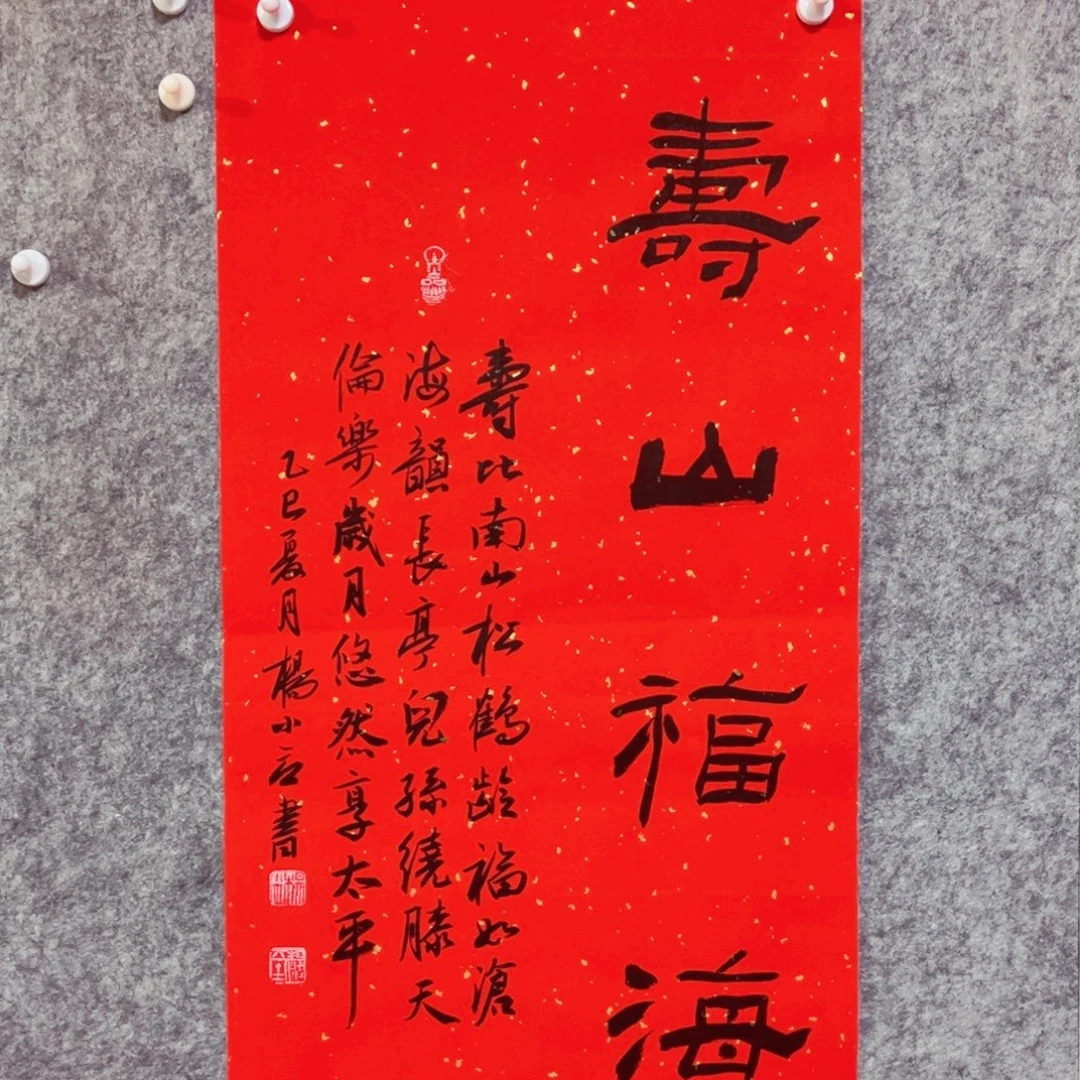 壽山福海
壽比南山松鶴齡福如滄
海韻長亭兒孫繞膝天
倫樂歲月悠然享太平
乙巳夏月楊小 書